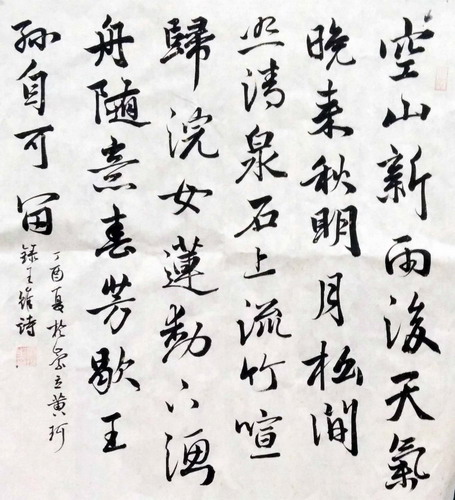 空山新雨後天氣
晚来秋明月松間
照清泉石上流竹喧
歸浣女蓮動下漁
舟隨意春芳歇王
孫自可留
丁酉夏於立黄
録王維詩